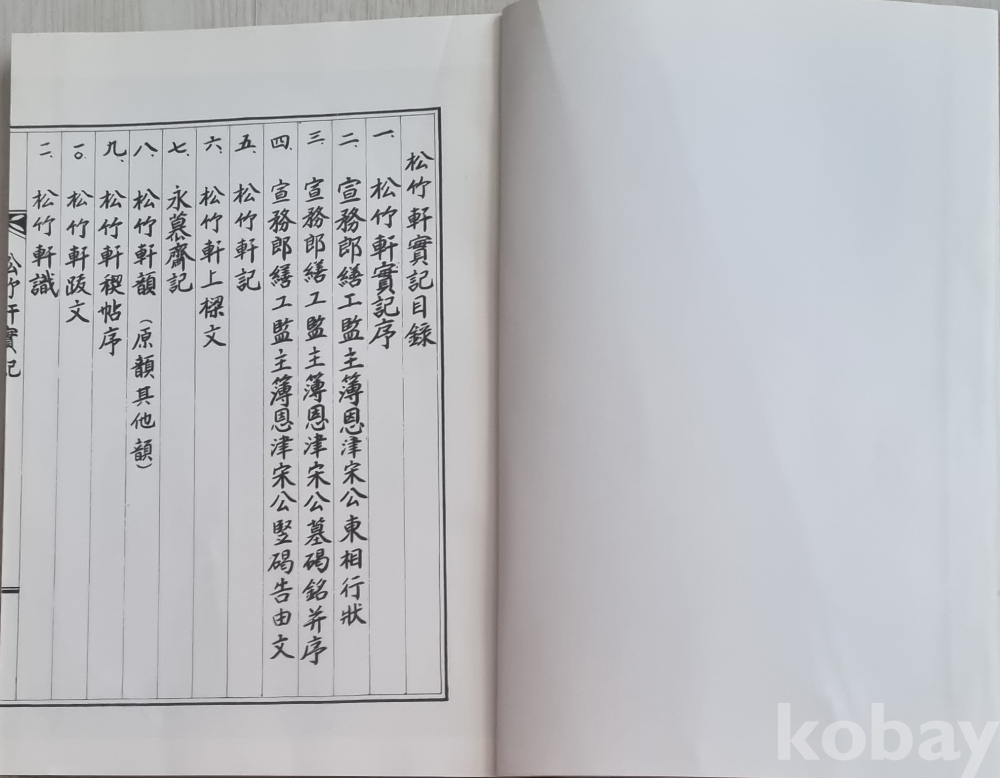 松竹軒實記目錄
一、松竹軒實記序
二、宣務郎繕工監主簿恩津宋公東相行狀
三、宣務郎繕工監主簿恩津宋公墓碣銘并序
四、宣務郎繕工監主簿恩津宋公竪碣告由文
五、松竹軒記
六、松竹軒上樑文
七、永慕齋記
八、松竹軒韻（原韻其他韻）
九、松竹軒稧帖序
一〇、松竹軒跋文
一一、松竹軒識
松竹軒實記
kobay